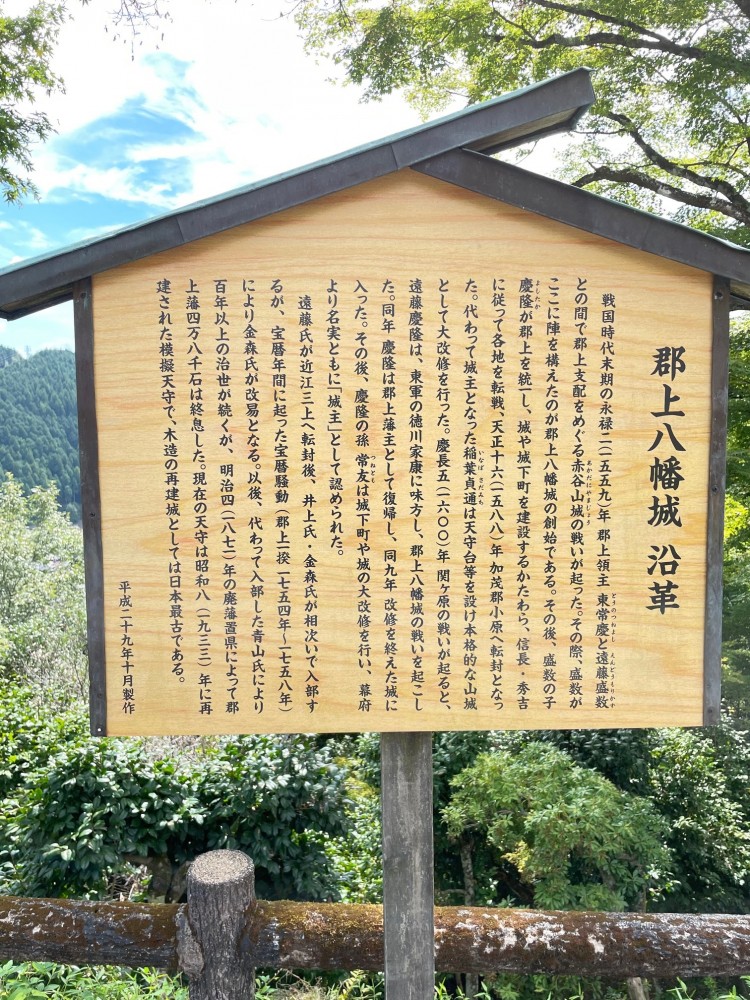 郡上八幡城 沿革
戦国時代末期の永禄二(一五五九)年 郡上領主 東常慶と遠藤盛数
との間で郡上支配をめぐる赤谷山城の戦いが起った。その際、盛数が
ここに陣を構えたのが郡上八幡城の創始である。その後、盛数の子
慶隆が郡上を統一し、城や城下町を建設するかたわら、信長・秀吉
に従って各地を転戦、天正十六(一五八八)年 加茂郡小原へ転封となっ
た。代わって城主となった稲葉貞通は天守台等を設け本格的な山城
として大改修を行った。慶長五(一六〇〇)年 関ヶ原の戦いが起ると、
遠藤慶隆は、東軍の徳川家康に味方し、郡上八幡城の戦いを起こし
た。同年 慶隆は郡上藩主として復帰し、同九年 改修を終えた城に
入った。その後、慶隆の孫 常友は城下町や城の大改修を行い、幕府
より名実ともに「城主」として認められた。
遠藤氏が近江三上へ転封後、井上氏・金森氏が相次いで入部す
るが、宝暦年間に起った宝暦騒動(郡上一揆 一七五四年~一七五八年)
により金森氏が改易となる。以後、代わって入部した青山氏により
百年以上の治世が続くが、明治四(一八七一)年の廃藩置県によって郡
上藩四万八千石は終息した。現在の天守は昭和八(一九三三)年に再
建された模擬天守で、木造の再建城としては日本最古である。
平成二十九年十月製作